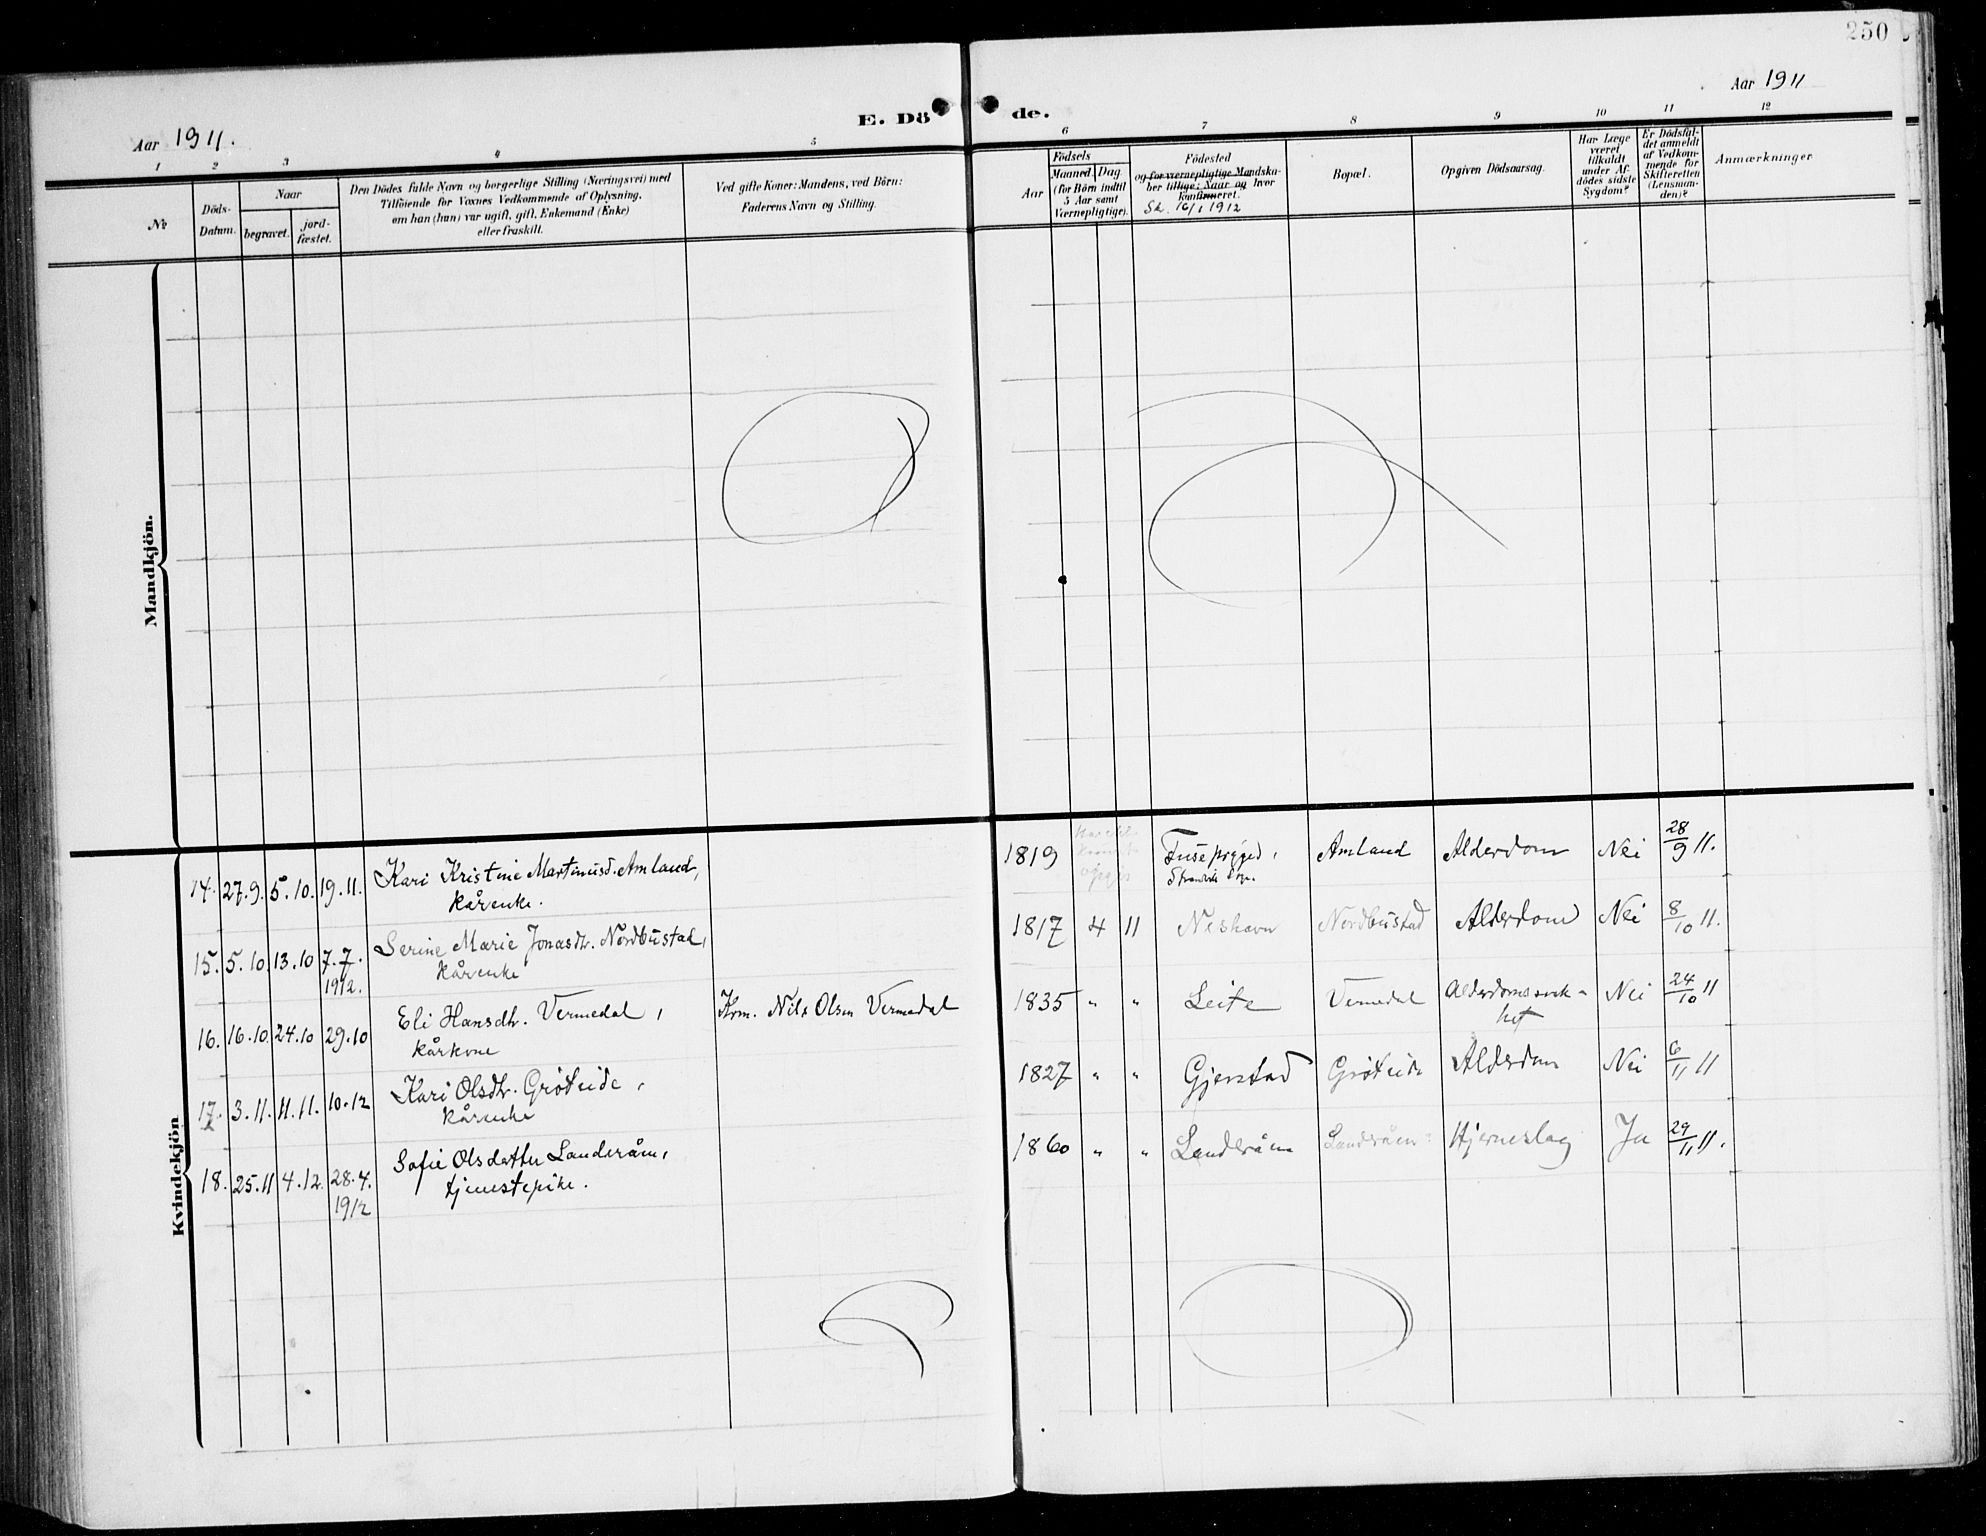 250
Aar 1911.
E. Döde.
Aar 1911
1 2 3 4 5 6 7 8 9 10 11 12
№
Döds-
Datum.
Naar
begravet.
jord-
fæstet.
Den Dödes fulde Navn og borgerlige Stilling (Næringsvei) med
Tilföiende for Voxnes Vedkommende af Oplysning,
om han (hun) var ugift, gift, Enkemand (Enke)
eller fraskilt.
Ved gifte Koner: Mandens, ved Börn:
Faderens Navn og Stilling.
Födsels
Aar
Maaned. Dag
(for Börn indtil
5 Aar samt
Værnepligtige).
Födested
og for værnepligtige Mandska-
ber tillige: Naar og hvor
konfirmeret.
Sk. 16/1 1912
Bopæl.
Opgiven Dödsaarsag.
Har Læge
været
tilkaldt
under Af-
dödes sidste
Sygdom?
Er Dödsfal-
det anmeldt
af Vedkom-
mende for
Skifteretten
(Lensman-
den)?
Anmærkninger
Mandkjön.
Kvindekjön
14. 27.9. 5.10. 19.11. Kari Kristine Martinusd. Amland, 1819 Amland Alderdom Nei 28/9 11.
kårenke.
15. 5.10. 13.10 7.7. Serine Marie Jonasdtr. Nordbustad, 1817 4 11 Neshavn Nordbustad Alderdom Nei 8/10 11.
1912. kårenke
16. 16.10. 24.10 29.10 Eli Hansdtr. Vermedal, Krm. Nils Olsen Vermedal 1835 " " Leite Vermedal Alderdomssvak- Nei 24/10 11
kårkone het
17. 3.11. 11.11. 10.12 Kari Olsdtr. Grøteide, 1827 " " Gjerstad Grøteide Alderdom Nei 6/11 11
kårenke
18. 25.11 4.12. 28.4. Sofie Olsdatter Landeråen, 1860 " " Landeråen Landeråen Hjerneslag Ja 29/11 11.
1912 tjenestepike.